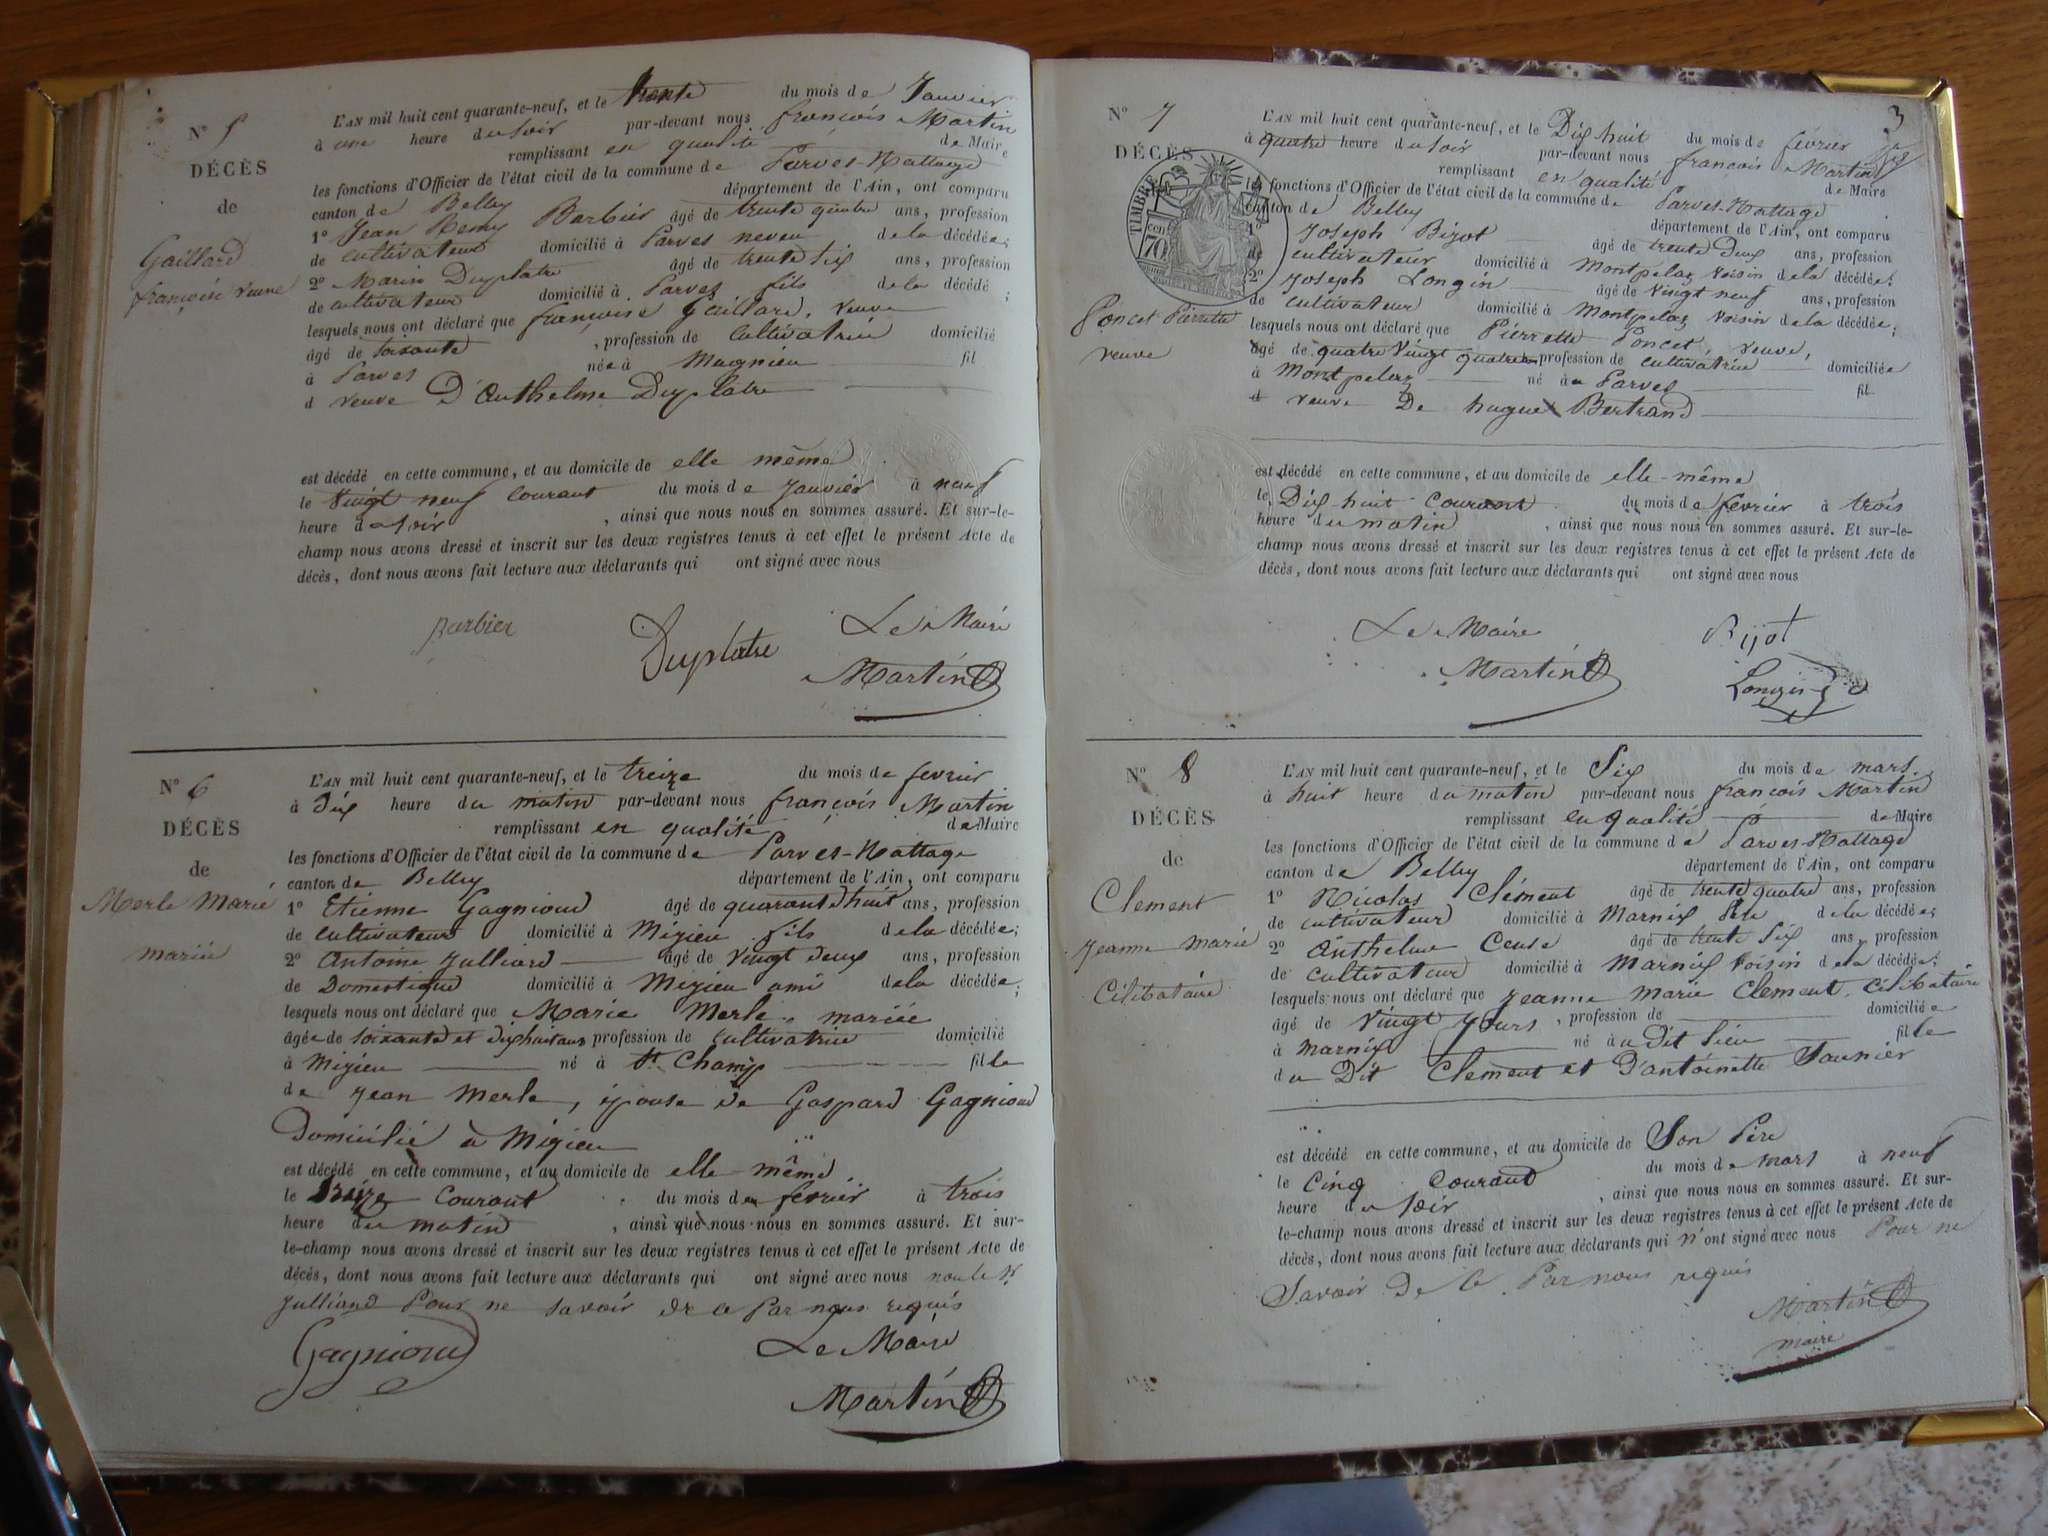 N° 5
DÉCÈS
de
Gaillard
françoise veuve
L'AN mil huit cent quarante-neuf, et le trente du mois de Janvier
à une heure du soir par-devant nous françois Martin
remplissant en qualité de Maire
les fonctions d'Officier de l'état civil de la commune de Parves-Nattage
canton de Belley département de l'Ain, ont comparu
1° Jean Remy Barbier âgé de trente quatre ans, profession
de cultivateur domicilié à Parves neveu de la décédée;
2° Marin Duplatre âgé de trente six ans, profession
de cultivateur domicilié à Parves fils de la décédé ;
lesquels nous ont déclaré que françoise Gaillard, veuve
âgé de soixante , profession de cultivatrice domicilié
à Parves née à Magnieu fil
d veuve D'Anthelme Duplatre
est décédé en cette commune, et au domicile de elle même
le vingt neuf courant du mois de janvier à neuf
heure du soir , ainsi que nous nous en sommes assuré. Et sur-le-
champ nous avons dressé et inscrit sur les deux registres tenus à cet effet le présent Acte de
décès, dont nous avons fait lecture aux déclarants qui ont signé avec nous
Barbier Duplatre Le Maire
Martin
N° 6
DÉCÈS
de
Merle Marie
mariée
L'AN mil huit cent quarante-neuf, et le treize du mois de fevrier
à dix heure du matin par-devant nous françois Martin
remplissant en qualité de Maire
les fonctions d'Officier de l'état civil de la commune de Parves-Nattage
canton de Belley département de l'Ain, ont comparu
1° Etienne Gagnioud âgé de quarante huit ans, profession
de cultivateur domicilié à Migieu fils de la décédée;
2° Antoine Julliard âgé de vingt deux ans, profession
de Domestique domicilié à Migieu ami de la décédée;
lesquels nous ont déclaré que Marie Merle, mariée
âgée de soixante et dix huit ans profession de cultivatrice domicilié
à Migieu né à St Champ fille
de jean Merle, épouse de Gaspard Gagnioud
Domicilié à Migieu
est décédé en cette commune, et au domicile de elle même
le treize courant du mois de fevrier à trois
heure du matin , ainsi que nous nous en sommes assuré. Et sur-
le-champ nous avons dressé et inscrit sur les deux registres tenus à cet effet le présent Acte de
décès, dont nous avons fait lecture aux déclarants qui ont signé avec nous
Julliard Pour ne savoir de ce Par nous requis
Gagnioud Le Maire
Martin
3
N° 7
DÉCÈS
TIMBRE
70 cen
Poncet Pierrette
veuve
L'AN mil huit cent quarante-neuf, et le Dix huit du mois de février
à quatre heure du soir par-devant nous francois Martin
remplissant en qualité de Maire
les fonctions d'Officier de l'état civil de la commune de Parves-Nattage
canton de Belley département de l'Ain, ont comparu
1° Joseph Bizot âgé de trente Deux ans, profession
de cultivateur domicilié à Montpelaz voisin de la décédée;
2° Joseph Longin âgé de vingt neuf ans, profession
de cultivateur domicilié à Montpelaz voisin de la décédée;
lesquels nous ont déclaré que Pierrette Poncet, veuve,
âgé de quatre vingt quatre profession de cultivatrice domiciliée
à Montpelaz né à Parves fil
d veuve De hugue Bertrand
est décédé en cette commune, et au domicile de elle-même
le Dix huit courant du mois de fevrier à trois
heure du matin , ainsi que nous nous en sommes assuré. Et sur-le-
champ nous avons dressé et inscrit sur les deux registres tenus à cet effet le présent Acte de
décès, dont nous avons fait lecture aux déclarants qui ont signé avec nous
Le Maire Bijot
Martin Longin
N° 8
DÉCÈS
de
Clement
jeanne marie
Célibataire
L'AN mil huit cent quarante-neuf, et le Six du mois de mars
à huit heure du matin par-devant nous francois Martin
remplissant en qualité de Maire
les fonctions d'Officier de l'état civil de la commune de Parves-Nattage
canton de Belley département de l'Ain, ont comparu
1° Nicolas Clément âgé de trente quatre ans, profession
de cultivateur domicilié à Marnix Père de la décédée;
2° Anthelme Ceuse âgé de trente six ans, profession
de cultivateur domicilié à Marnix voisin de la décédée;
lesquels nous ont déclaré que jeanne marie Clement, Célibataire
âgé de vingt jours , profession de domiciliée
à marnix né à Dit lieu fille
du Dit Clement et D'antoinette Taunier
est décédé en cette commune, et au domicile de Son Père
le Cinq Courant du mois de mars à neuf
heure du soir , ainsi que nous nous en sommes assuré. Et sur-
le-champ nous avons dressé et inscrit sur les deux registres tenus à cet effet le présent Acte de
décès, dont nous avons fait lecture aux déclarants qui n'ont signé avec nous Pour ne
Savoir De ce Par nous requis
Martin
maire